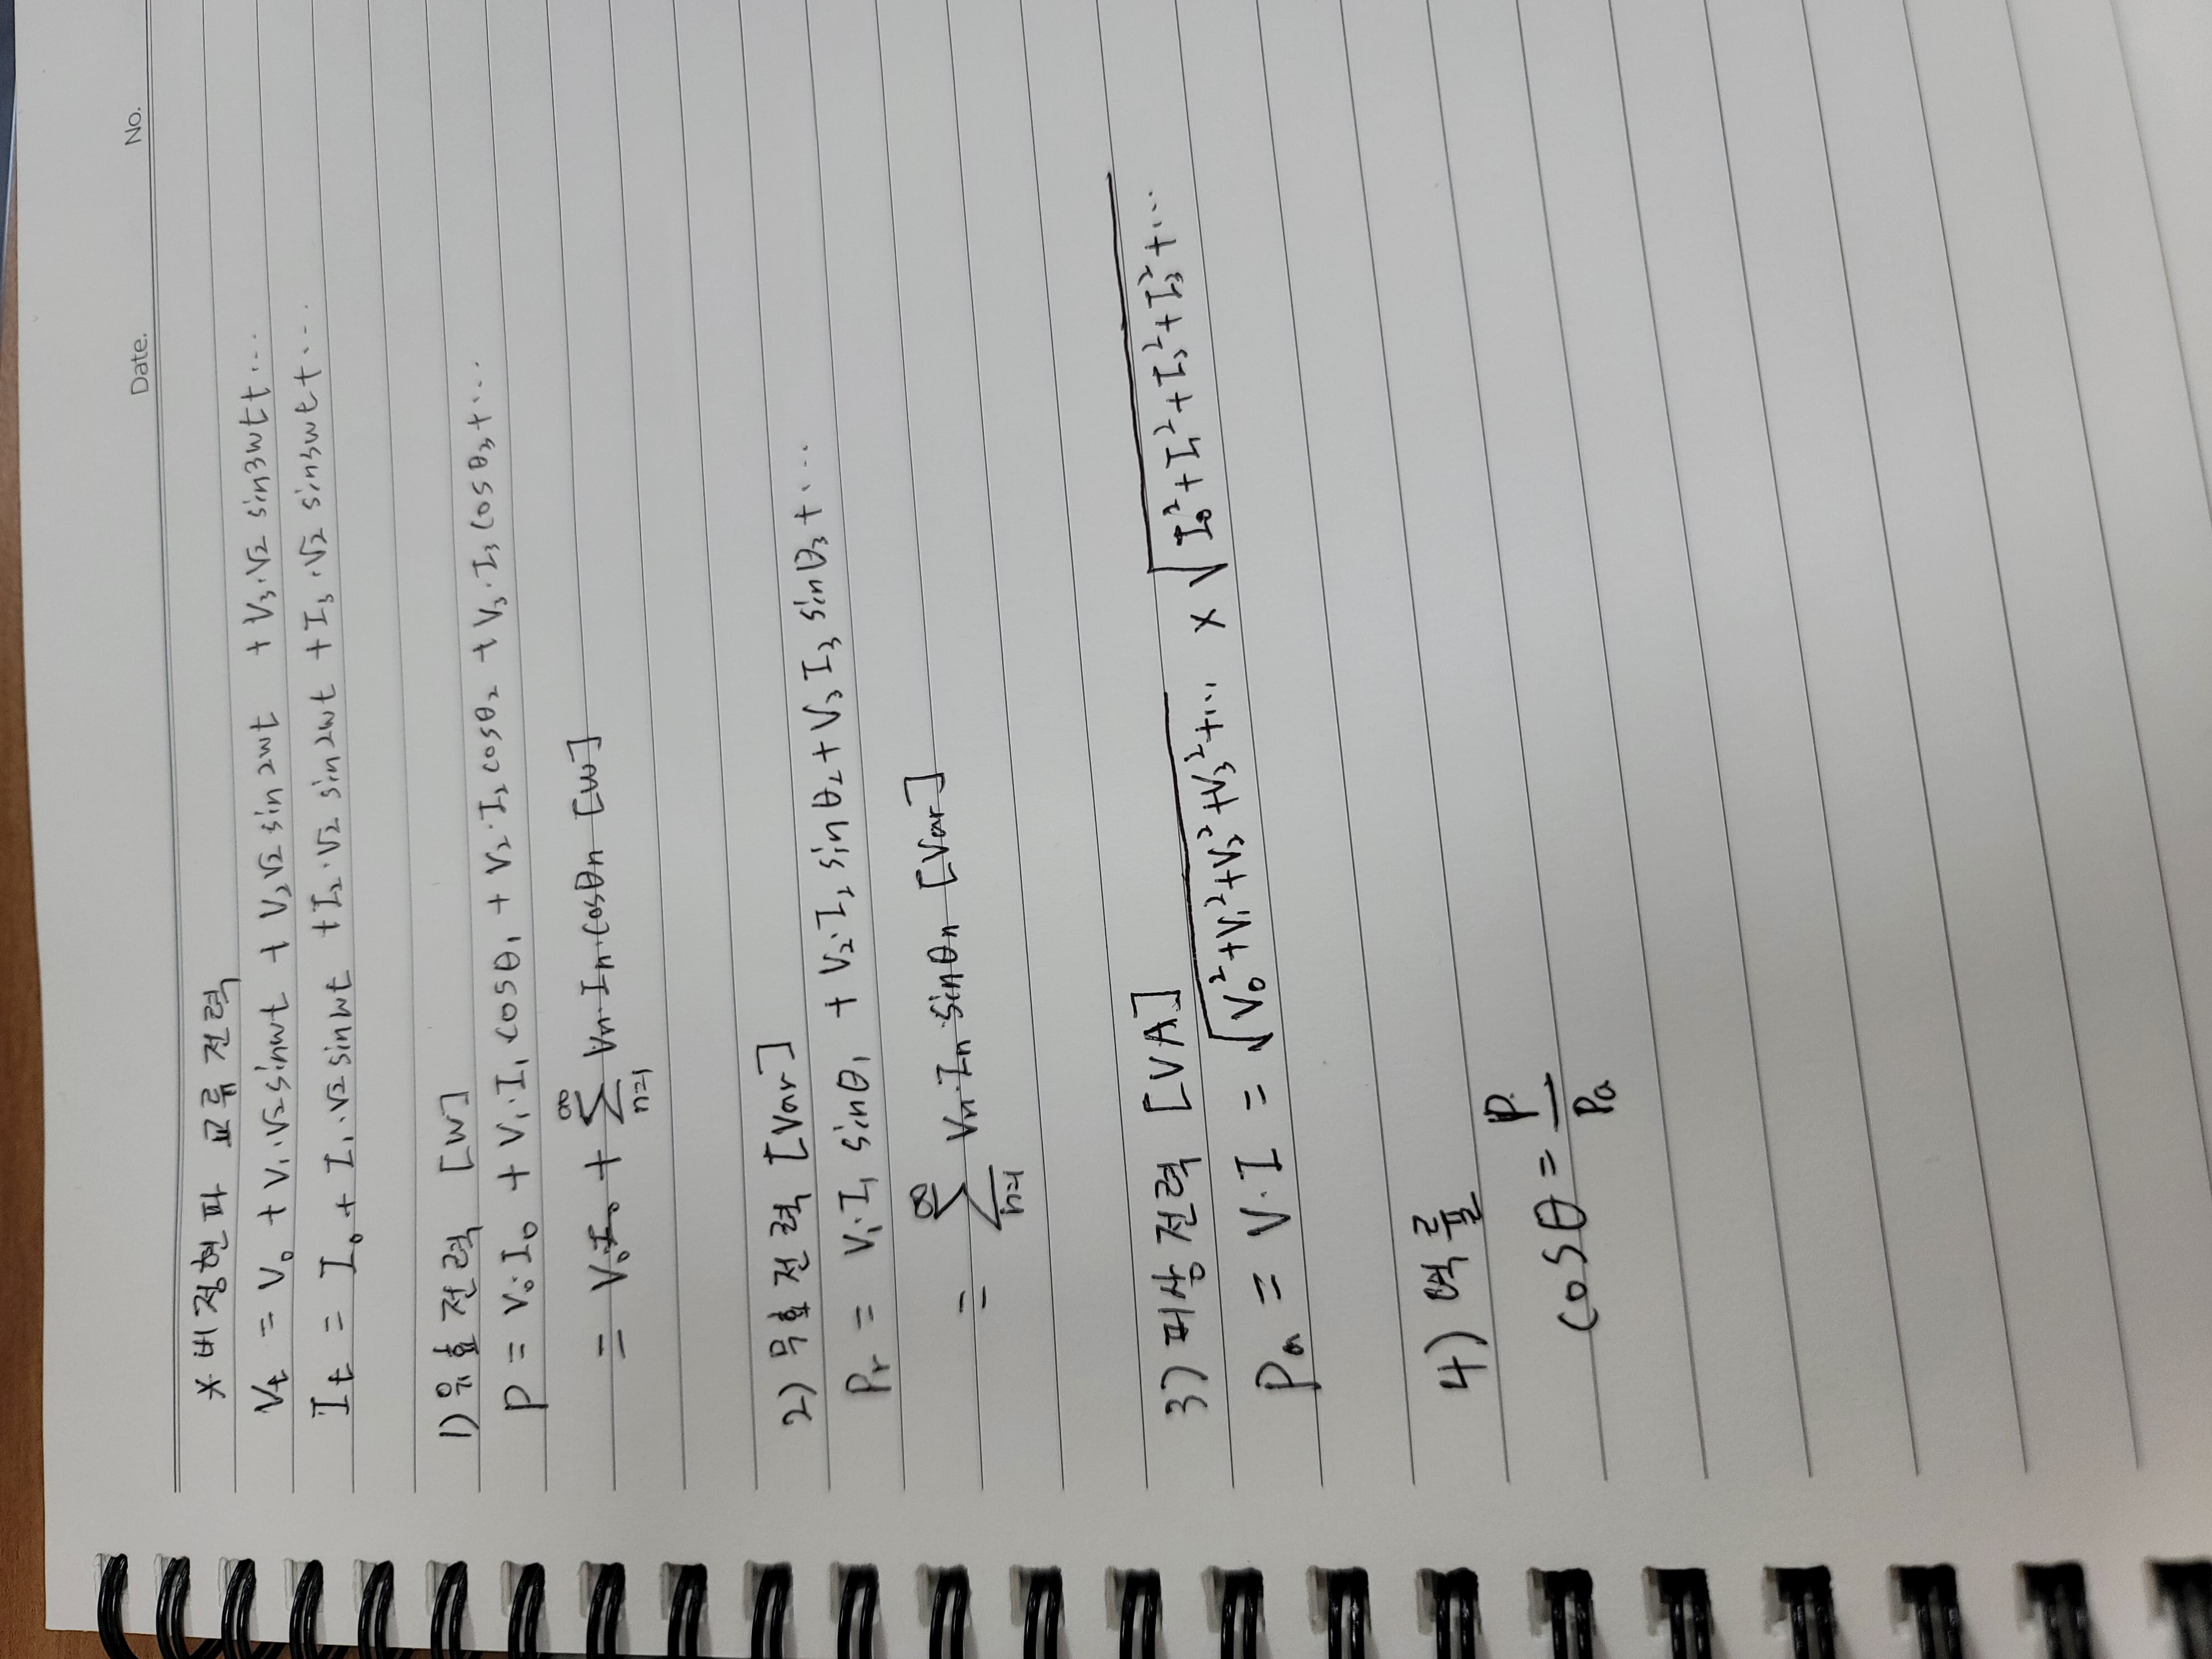 Date. No.
* 비정현파 교류 전력
Vt = V₀ + V₁·√2 sinwt + V₂√2 sin 2wt + V₃·√2 sin3wt+...
It = I₀ + I₁·√2 sinwt + I₂·√2 sin2wt + I₃·√2 sin3wt+...
1) 유효 전력 [W]
P = V₀I₀ + V₁·I₁ cosθ₁ + V₂·I₂ cosθ₂ + V₃·I₃ cosθ₃+...
= V₀I₀ + ∞∑n=1 Vn·In·cosθn [W]
2) 무효 전력 [Var]
Pr = V₁I₁ sinθ₁ + V₂·I₂ sinθ₂ + V₃I₃ sinθ₃+...
= ∞∑n=1 Vn·In·sinθn [Var]
3) 피상 전력 [VA]
Pa = V·I = √V₀²+V₁²+V₂²+V₃²+... × √I₀²+I₁²+I₂²+I₃²+...
4) 역률
cosθ = P/Pa